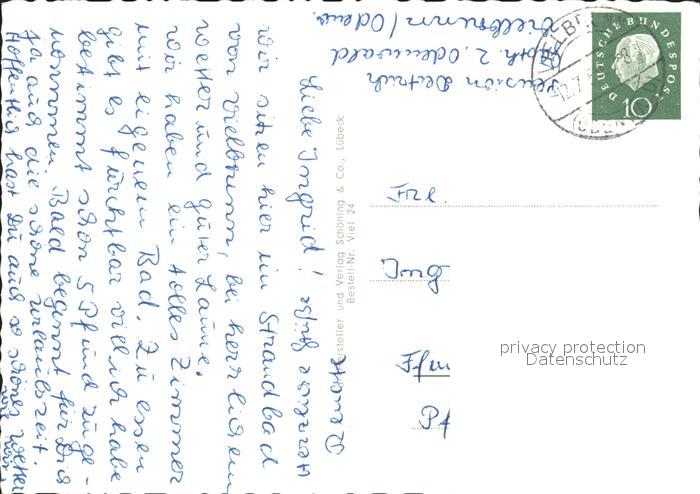 Liebe Ingrid!
wir sitzen hier im Strandbad
von Vielbrunn, bei herrlichem
Wetter und guter Laune.
Wir haben ein tolles Zimmer
mit eigenem Bad. Zu essen
gibt es furchtbar viel ich habe
bestimmt schon 5 Pfund zuge-
nommen. Bald beginnt für Dich
ja auch die schöne Urlaubszeit.
Hoffentlich hast Du auch so schönes Wetter
Herzliche Grüße
Hersteller und Verlag Schöning & Co., Lübeck
Bestell-Nr. Viel 24
Pension Dietrich
2. Odenwald
Vielbrunn/Odenw.
DEUTSCHE BUNDESPOST
10
Frl.
Ing
Ffm
Pf
privacy protection
Datenschutz